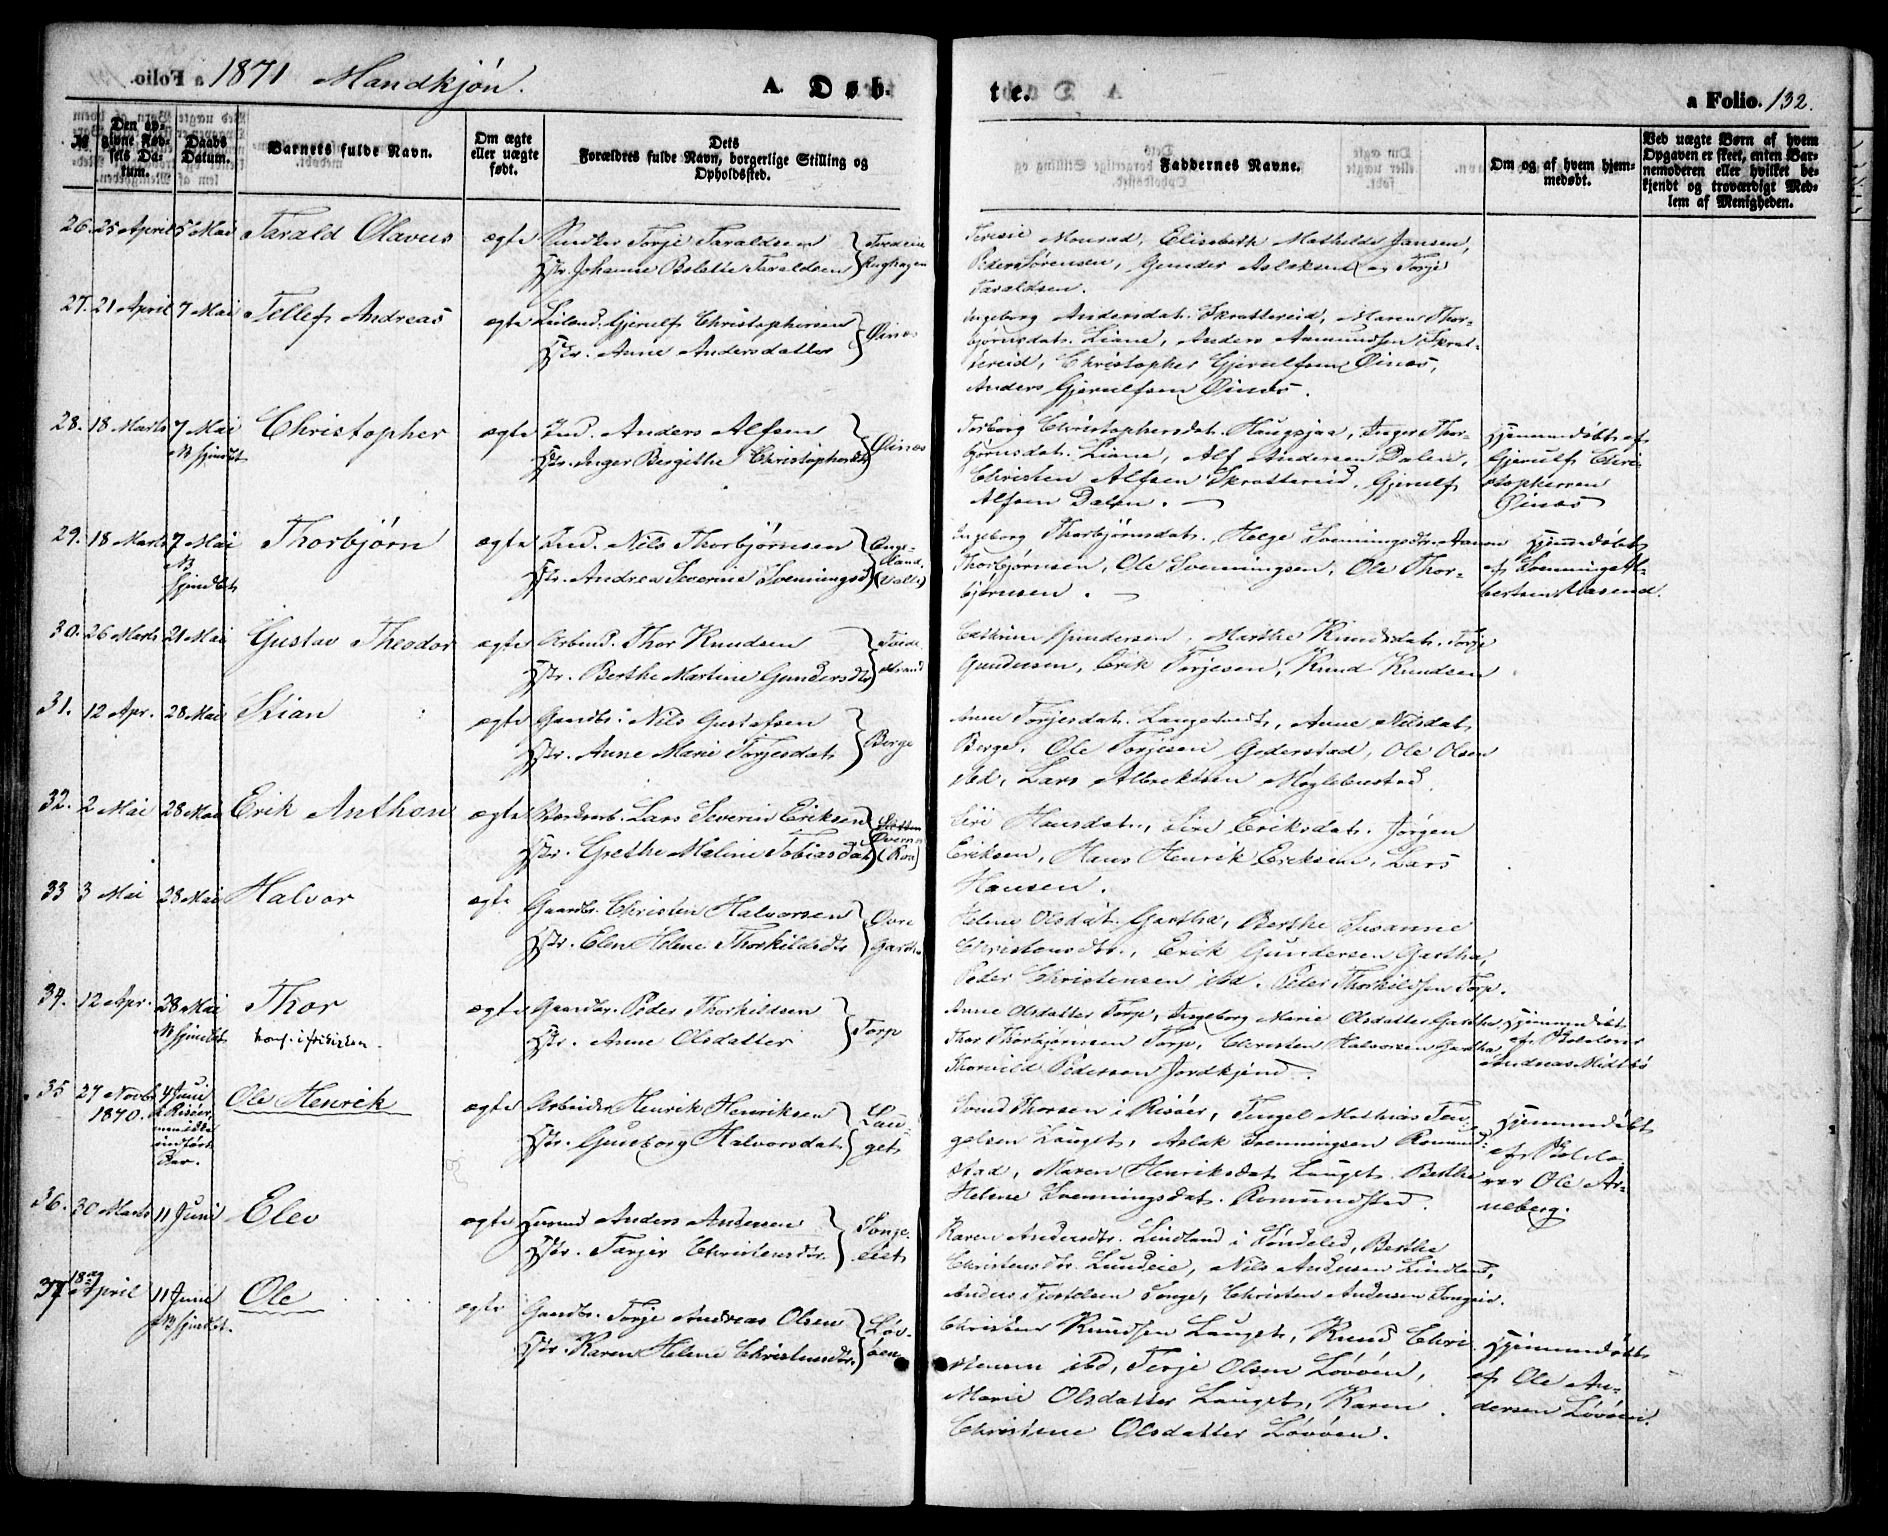 1871 Mandkjøn.
A. Døb-
te.
a Folio. 132.
№
Den op-
givne Fød-
sels Da-
tum.
Daabs
Datum.
Barnets fulde Navn.
Om ægte
eller uægte
født.
Dets
Forældres fulde Navn, borgerlige Stilling og
Opholdssted.
Faddernes Navne.
Om og af hvem hjem-
medøbt.
Ved uægte Børn af hvem
Opgaven er skeet, enten Bar-
nemoderen eller hvilket be-
kjendt og troværdigt Med-
lem af Menigheden.
26. 25 April 5 Mai Tarald Olavus ægte Torje Taraldsen
Johanne Bolette Taraldsen
Mourad, Elisabeth Mathilde Jansen,
Peder Sørensen, Gunder Aslaksen og Torje
Taraldsen.
27. 21 April 7 Mai Tellef Andreas ægte Gjerulf Christophersen
Anne Andersdatter Øinæs
Ingeborg Andersdat. Skrattereid, Maren Thor-
bjørnsdat. Liane, Anders Aamundsen Skrat-
tereid, Christopher Gjerulfsen Øinæs,
Anders Gjerulfsen Øinæs.
28. 18 Marts 7 Mai Christopher ægte Ind. Anders Alfsen
Inger Bergithe Christophersdt Øinæs
Torborg Christophersdat. Haugsjaa, Inger Thor-
bjørnsdat. Liane, Alf Andersen Dalen,
Christen Alfsen Skrattereid, Gjerulf
Alfsen Dalen.
Hjemmedøbt af
Gjerulf Chri-
stophersen
Øinæs
29. 18 Marts 7 Mai Thorbjørn ægte Ind. Nils Thorbjørnsen
Andrea Severine Svenningsd (Valle)
Ingeborg Thorbjørnsdat. Helge Svenningsdtr. Aanon
Thorbjørnsen, Ole Svenningsen, Ole Thor-
bjørnsen.
Hjemmedøbt
af Svenning Al-
bertsen Aasend.
30. 26 Marts 21 Mai Gustav Theodor ægte Arbeid. Thor Knudsen
Berthe Martine Gundersdtr
Cathrine Gundersen, Marthe Knudsdat. Torje
Gundersen, Erik Torjesen, Knud Knudsen
31. 12 Apr. 28 Mai Stian ægte Gaardbr. Nils Gustafsen
Anne Marie Torjesdat. Berge
Anne Torjesdat. Langetvedt, Anne Nilsdat.
Berge, Ole Torjesen Goderstad, Ole Olsen
ibd, Lars Albrektsen Møglebustad.
32. 2 Mai 28 Mai Erik Anthon ægte Lars Severin Eriksen
Grethe Maline Tobiasdat
Siri Hansdat., Sire Eriksdat. Jørgen
Eriksen, Hans Henrik Eriksen, Lars
Hansen.
33 3 Mai 28 Mai Halvor ægte Gaardbr. Christen Halvorsen
Elen Helene Thorkildsdtr Øvre
Gartha
Helene Olsdat. Gartha, Berthe Susanne
Christensdtr., Erik Gundersen Gartha,
Peder Christensen ibd. Peter Thorkildsen Torp.
34. 12 Apr. 28 Mai Thor ægte Gaardbr. Peder Thorkildsen
Anne Olsdatter Torp
Anne Olsdatter Torp, Ingeborg Marie Olsdatter Gartha
Thor Thorbjørnsen Torp, Christen Halvorsen Gartha
Thorvild Pedersen Jordkjend.
Hjemmedøbt
af
Andreas Midtbø
35 27 Novbr 1870. 4 Juni
Ole Henrik ægte Arbeider Henrik Henriksen
Guneborg Halvorsdat. Lau-
get
Svend Thorsen i Risøer, Tengel Mathias Ten-
gelsen Lauget, Aslak Svenningsen Romund-
stad, Maren Henriksdat. Lauget. Berthe
Helene Svenningsdat. Romundstad.
Hjemmedøbt
af
Ole Ar-
neberg.
36. 30 Marts 11 Juni Elev ægte Anders Andersen
Tarjer Christensdtr. Songe-
eiet
Karen Andersdtr. Lindland i Søndeled, Berthe
Christensdtr. Lundeie, Nils Andersen Lindland,
Anders Songe, Christen Andersen Songeie.
37 18de April 11 Juni Ole ægte Gaardbr. Torje Andreas Olsen
Karen Helene Christensdtr. Løv-
øen
Christen Knudsen Lauget, Knud Chri-
stensen ibd, Terje Olsen Løvøen,
Marie Olsdatter Lauget, Karen
Christine Olsdatter Løvøen.
Hjemmedøbt
af Ole An-
dersen Løvøen.